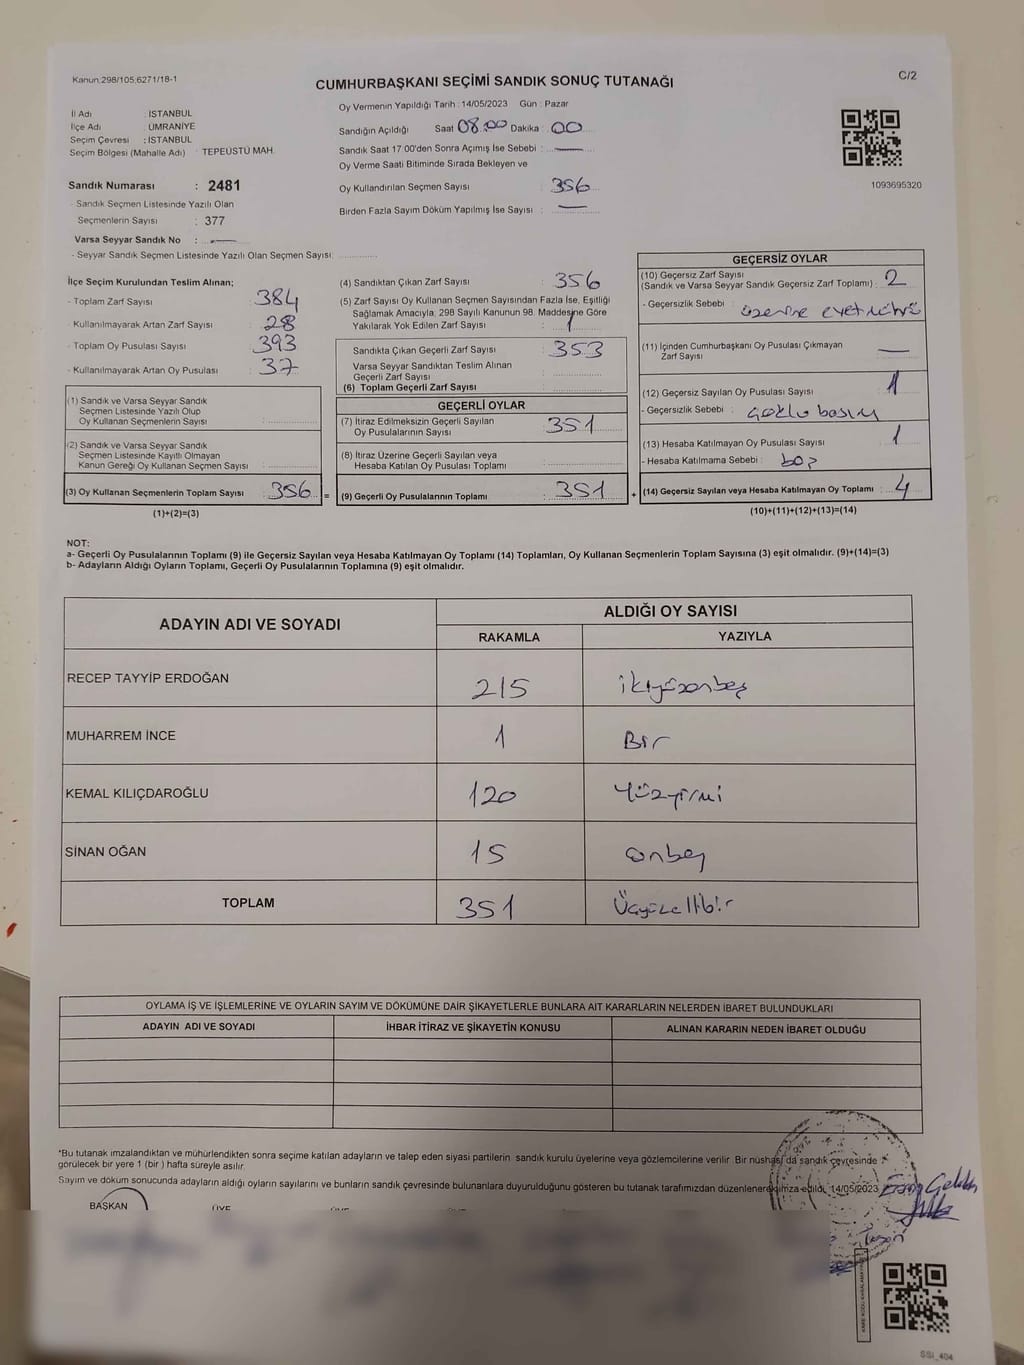 Kanun:298/105,6271/18-1
C/2
CUMHURBAŞKANI SEÇİMİ SANDIK SONUÇ TUTANAĞI
İl Adı : İSTANBUL
İlçe Adı : ÜMRANİYE
Seçim Çevresi : İSTANBUL
Seçim Bölgesi (Mahalle Adı) : TEPEÜSTÜ MAH.
Sandık Numarası : 2481
- Sandık Seçmen Listesinde Yazılı Olan
Seçmenlerin Sayısı : 377
Varsa Seyyar Sandık No : —
- Seyyar Sandık Seçmen Listesinde Yazılı Olan Seçmen Sayısı:
Oy Vermenin Yapıldığı Tarih : 14/05/2023 Gün : Pazar
Sandığın Açıldığı Saat 08:00 Dakika : 00
Sandık Saat 17:00'den Sonra Açımış İse Sebebi : —
Oy Verme Saati Bitiminde Sırada Bekleyen ve
Oy Kullandırılan Seçmen Sayısı : 356
Birden Fazla Sayım Döküm Yapılmış İse Sayısı : —
1093695320
İlçe Seçim Kurulundan Teslim Alınan;
- Toplam Zarf Sayısı : 384
- Kullanılmayarak Artan Zarf Sayısı : 28
- Toplam Oy Pusulası Sayısı : 393
- Kullanılmayarak Artan Oy Pusulası : 37
(1) Sandık ve Varsa Seyyar Sandık
Seçmen Listesinde Yazılı Olup
Oy Kullanan Seçmenlerin Sayısı :
(2) Sandık ve Varsa Seyyar Sandık
Seçmen Listesinde Kayıtlı Olmayan
Kanun Gereği Oy Kullanan Seçmen Sayısı :
(3) Oy Kullanan Seçmenlerin Toplam Sayısı : 356 =
(1)+(2)=(3)
(4) Sandıktan Çıkan Zarf Sayısı : 356
(5) Zarf Sayısı Oy Kullanan Seçmen Sayısından Fazla İse, Eşitliği
Sağlamak Amacıyla, 298 Sayılı Kanunun 98. Maddesine Göre
Yakılarak Yok Edilen Zarf Sayısı : 1
Sandıkta Çıkan Geçerli Zarf Sayısı : 353
Varsa Seyyar Sandıktan Teslim Alınan
Geçerli Zarf Sayısı :
(6) Toplam Geçerli Zarf Sayısı :
GEÇERLİ OYLAR
(7) İtiraz Edilmeksizin Geçerli Sayılan
Oy Pusulalarının Sayısı : 351
(8) İtiraz Üzerine Geçerli Sayılan veya
Hesaba Katılan Oy Pusulası Toplamı :
(9) Geçerli Oy Pusulalarının Toplamı : 351 +
GEÇERSİZ OYLAR
(10) Geçersiz Zarf Sayısı
(Sandık ve Varsa Seyyar Sandık Geçersiz Zarf Toplamı) : 2
- Geçersizlik Sebebi : üzerine evet mührü
(11) İçinden Cumhurbaşkanı Oy Pusulası Çıkmayan
Zarf Sayısı : —
(12) Geçersiz Sayılan Oy Pusulası Sayısı : 1
- Geçersizlik Sebebi : çoklu basım
(13) Hesaba Katılmayan Oy Pusulası Sayısı : 1
- Hesaba Katılmama Sebebi : boş
(14) Geçersiz Sayılan veya Hesaba Katılmayan Oy Toplamı : 4
(10)+(11)+(12)+(13)=(14)
NOT:
a- Geçerli Oy Pusulalarının Toplamı (9) ile Geçersiz Sayılan veya Hesaba Katılmayan Oy Toplamı (14) Toplamları, Oy Kullanan Seçmenlerin Toplam Sayısına (3) eşit olmalıdır. (9)+(14)=(3)
b- Adayların Aldığı Oyların Toplamı, Geçerli Oy Pusulalarının Toplamına (9) eşit olmalıdır.
ADAYIN ADI VE SOYADI
ALDIĞI OY SAYISI
RAKAMLA YAZIYLA
RECEP TAYYİP ERDOĞAN 215 ikiyüzonbeş
MUHARREM İNCE 1 Bir
KEMAL KILIÇDAROĞLU 120 Yüzyirmi
SİNAN OĞAN 15 onbeş
TOPLAM 351 Üçyüzellibir
OYLAMA İŞ VE İŞLEMLERİNE VE OYLARIN SAYIM VE DÖKÜMÜNE DAİR ŞİKAYETLERLE BUNLARA AİT KARARLARIN NELERDEN İBARET BULUNDUKLARI
ADAYIN ADI VE SOYADI İHBAR İTİRAZ VE ŞİKAYETİN KONUSU ALINAN KARARIN NEDEN İBARET OLDUĞU
*Bu tutanak imzalandıktan ve mühürlendikten sonra seçime katılan adayların ve talep eden siyasi partilerin sandık kurulu üyelerine veya gözlemcilerine verilir. Bir nüshası da sandık çevresinde
görülecek bir yere 1 (bir) hafta süreyle asılır.
Sayım ve döküm sonucunda adayların aldığı oyların sayılarını ve bunların sandık çevresinde bulunanlara duyurulduğunu gösteren bu tutanak tarafımızdan düzenlenerek imza edildi. 14/05/2023
BAŞKAN ÜYE
SSI_404